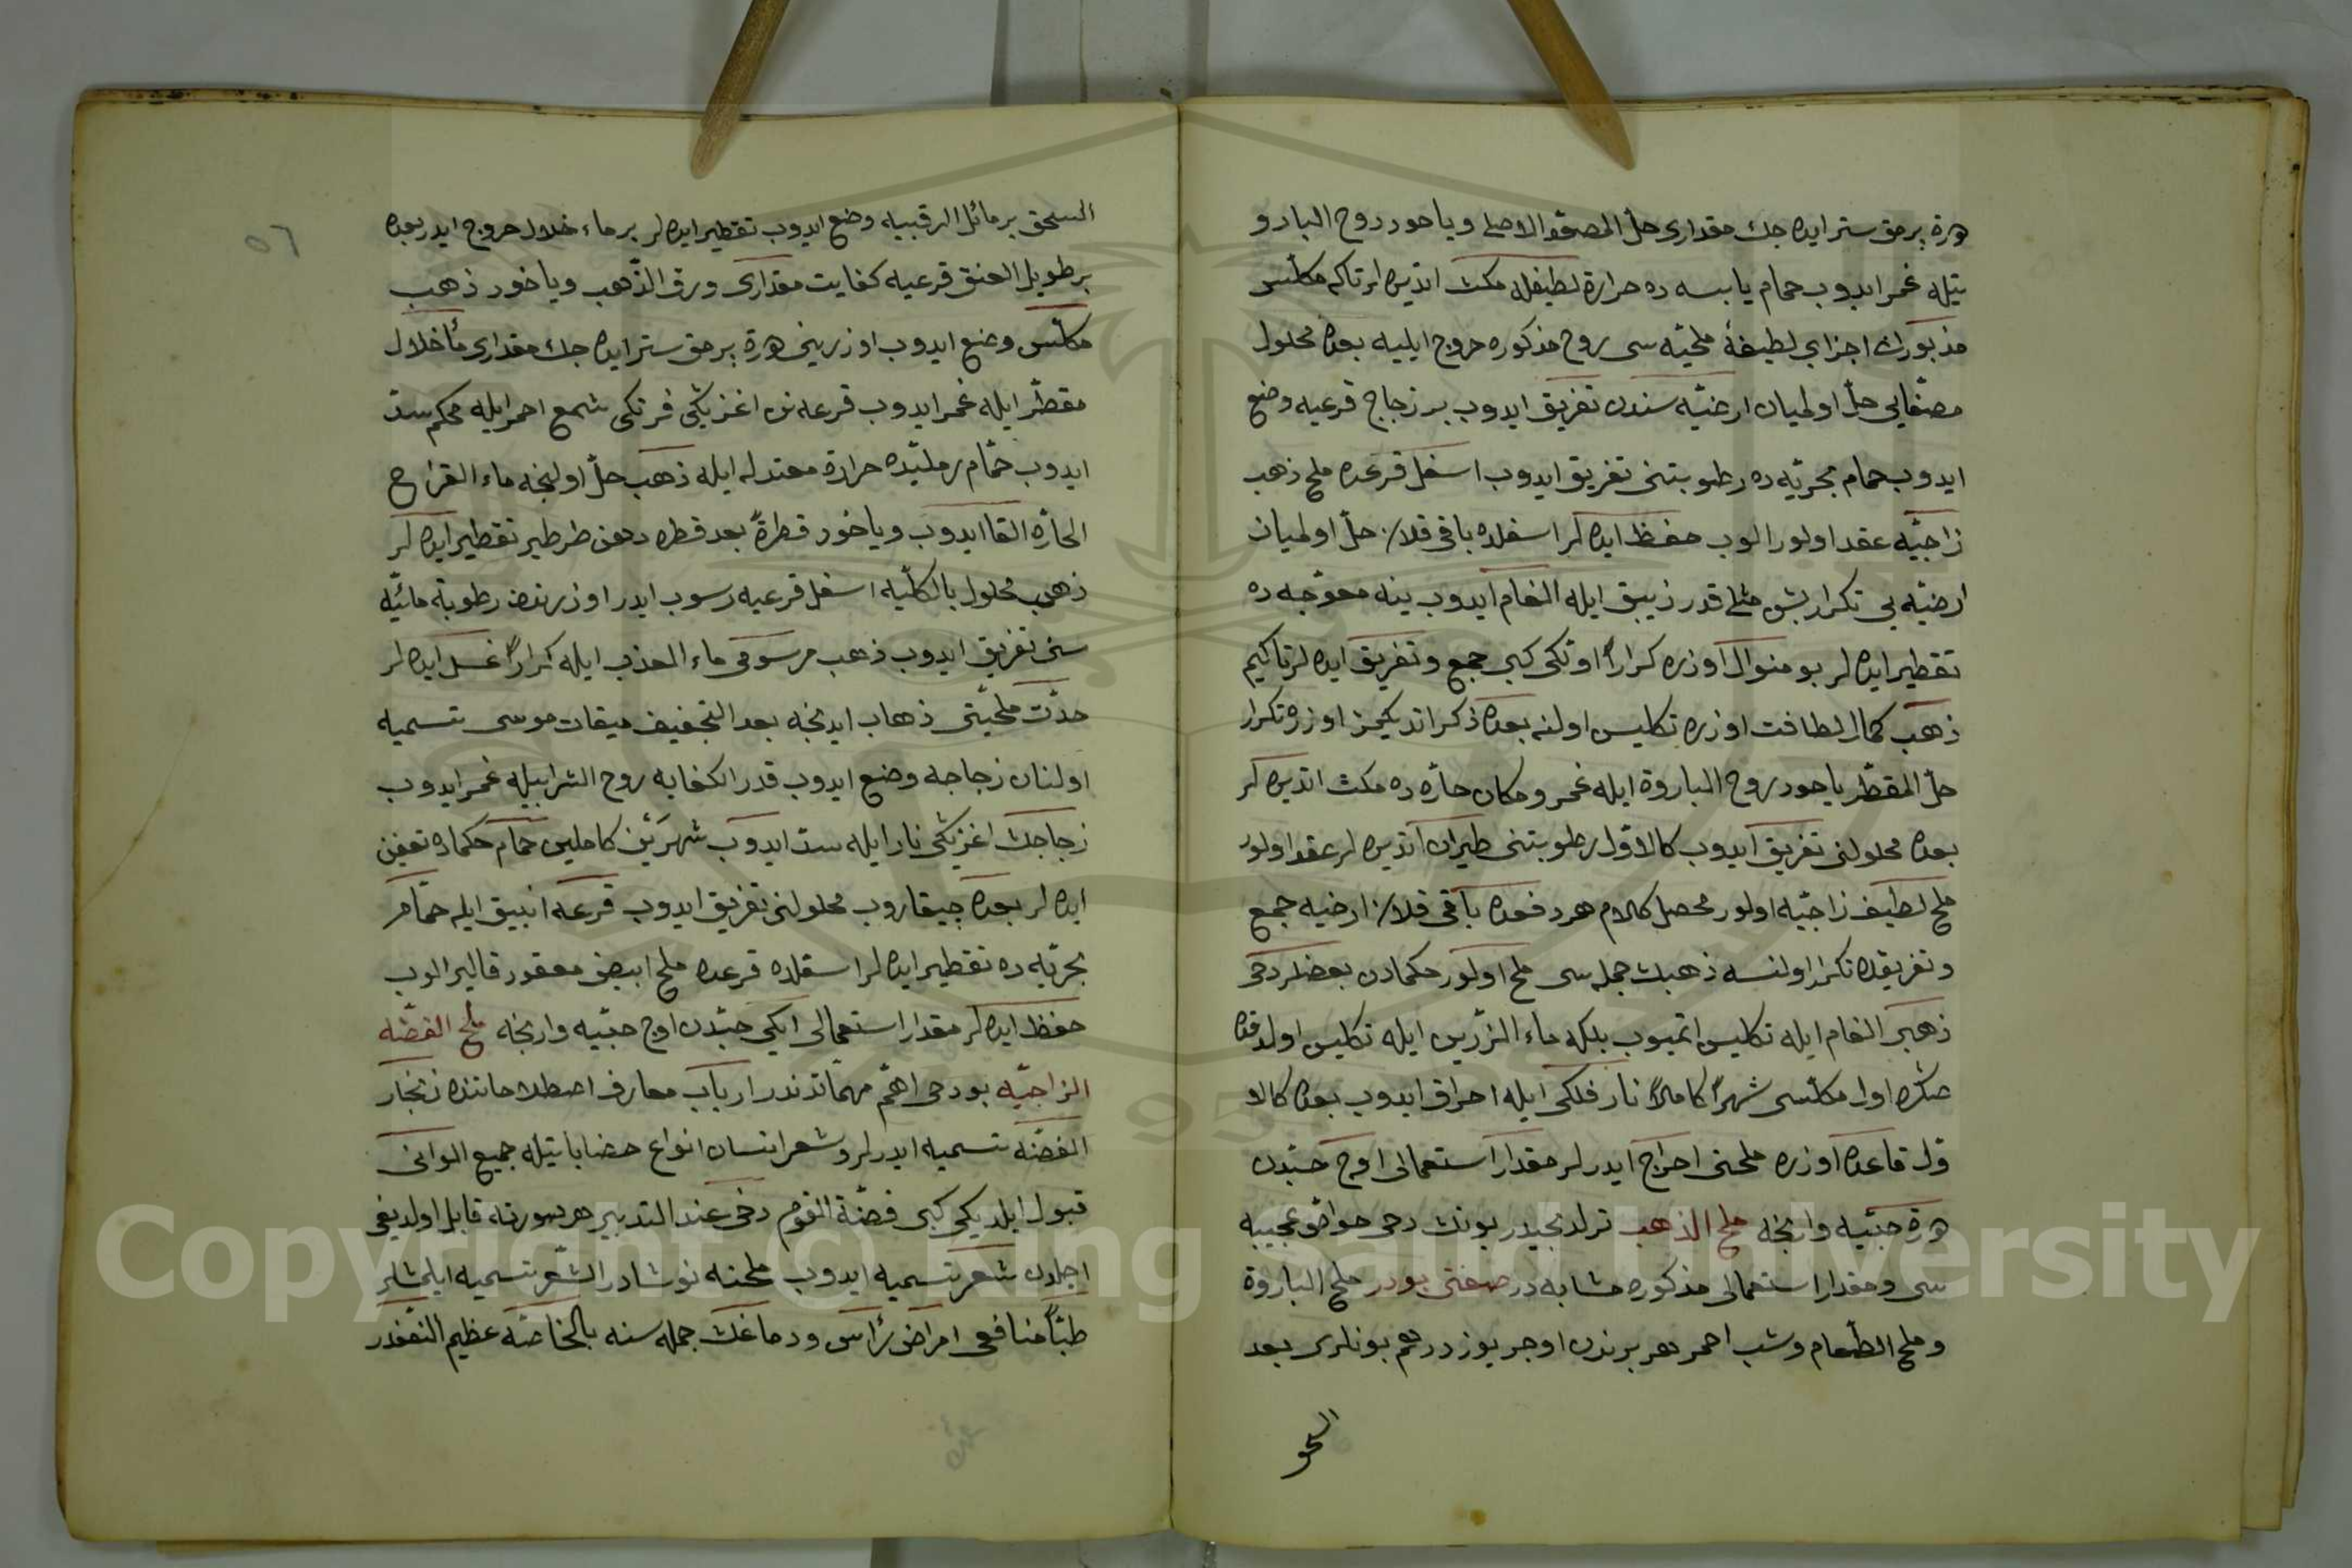 هرة برمق ستر ايده جك مقدارى خلّ المصعّد الاصلى وياخود روح البارو
تيله غمر ايدوب حمام يابسه ده حرارة لطيفله مكث اتديره لر تاكه مكلّس
مذبورك اجزاى لطيفهٔ ملحيّه سى روح مذكوره خروج ايليه بعده محلول
مصفّايى حلّ اولميان ارضيّه سندن تفريق ايدوب بر زجاج قرعيه وضع
ايدوب حمام بحريّه ده رطوبتنى تفريق ايدوب اسفل قرعده ملح ذهب
زاجيّه عقد اولور الوب حفظ ايده لر اسفلده باقى قلان حلّ اولميان
ارضيّه يى تكرار بش مثلى قدر زيبق ايله الغام ايدوب ينه معوّجه ده
تقطير ايده لر بو منوال اوزره كراراً اولكى كبى جمع وتفريق ايده لر تاكيم
ذهب كمال لطافت اوزره تكليس اولنه بعده ذكر اتديكمز اوزره تكرار
خلّ المقطّر ياخود روح الباروة ايله غمر ومكان حارّه ده مكث اتديره لر
بعده محلولنى تفريق ايدوب كالاوّل رطوبتنى طيران اتديره لر عقد اولور
ملح لطيف زاجيّه اولور محصل كلام هر دفعده باقى قلان ارضيه جمع
وتفريقده تكرار اولنسه ذهبك جمله سى ملح اولور حكمادن بعضلر دخى
ذهبى الغام ايله تكليس اتميوب بلكه ماء الزّرين ايله تكليس اولدقدن
صكره اول مكلّسى شهراً كاملاً نار فلكى ايله احراق ايدوب بعده كالاو
ول قاعده اوزره ملحنى اخراج ايدرلر مقدار استعمالى اوج حبّه دن
هرة حبّيه وارنجه ملح الذهب ترلدنجيدر بونك دخى خواصّ عجيبه
سى ومقدار استعمالى مذكوره مشابه در صفتى بودر ملح الباروة
وملح الطّعام وشب احمر هر برندن اوجر يوز درهم بونلرى بعد
السحق
السحق بر مائل الرقبيه وضع ايدوب تقطير ايده لر بر ماء خلال خروج ايدر بعده
بر طويل العنق قرعيه كفايت مقدارى ورق الذّهب وياخود ذهب
مكلّس وضع ايدوب اوزرينى هرة برمق ستر ايده جك مقدارى ماء خلال
مقطّر ايله غمر ايدوب قرعه نك اغزيكى فرنكى شمع احمر ايله محكم سدّ
ايدوب حمّام رمليّده حرارة معتدله ايله ذهب حلّ اولنجه ماء القراح
الحارّه القا ايدوب وياخود قطرةً بعد قطره دهن طرطير تقطير ايده لر
ذهب محلول بالكليّه اسفل قرعيه رسوب ايدر اوزرندن رطوبة مائيّه
سنى تفريق ايدوب ذهب مرسومى ماء العذب ايله كراراً غسل ايده لر
حدّت ملحيّتى ذهاب ايدنجه بعد التجفيف ميقات موسى تسميه
اولنان زجاجه وضع ايدوب قدر الكفايه روح الشّرابيله غمر ايدوب
زجاجك اغزيكى نار ايله سدّ ايدوب شهرَيْن كاملين حمام حكماده تعفين
ايده لر بعده چيقاروب محلولنى تفريق ايدوب قرعه انبيق ايله حمّام
بحريّه ده تقطير ايده لر اسفلده قرعده ملح ابيض معقود قالير الوب
حفظ ايده لر مقدار استعمالى ايكى حبّدن اوج حبّيه وارنجه ملح الفضّه
الزاجيّه بو دخى اهمّ مهمّاتدندر ارباب معارف اصطلاحاتنده زنجار
الفضّه تسميه ايدرلر وشعر انسان انواع خضاباتيله جميع الوانى
قبول ايلديكى كبى فضّة القوم دخى عند التدبير هر صورته قابل اولديغى
اجلدن شعر تسميه ايدوب ملحنه نوشادر الشّعر تسميه ايلمشلر
طبّاً منافعى امراض رأس ودماغك جمله سنه بالخاصّه عظيم النّفعدر